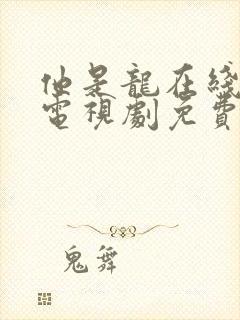 他是龍在綫
電視劇免費
鬼舞